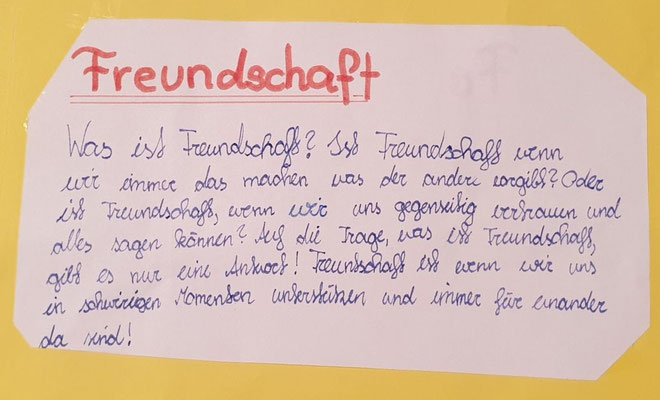 Freundschaft
Was ist Freundschaft? Ist Freundschaft wenn
wir immer das machen was der andere vorgibt? Oder
ist Freundschaft, wenn wir uns gegenseitig vertrauen und
alles sagen können? Auf die Frage, was ist Freundschaft,
gibt es nur eine Antwort! Freundschaft ist wenn wir uns
in schwirigen Momenten unterstützen und immer für einander
da sind!